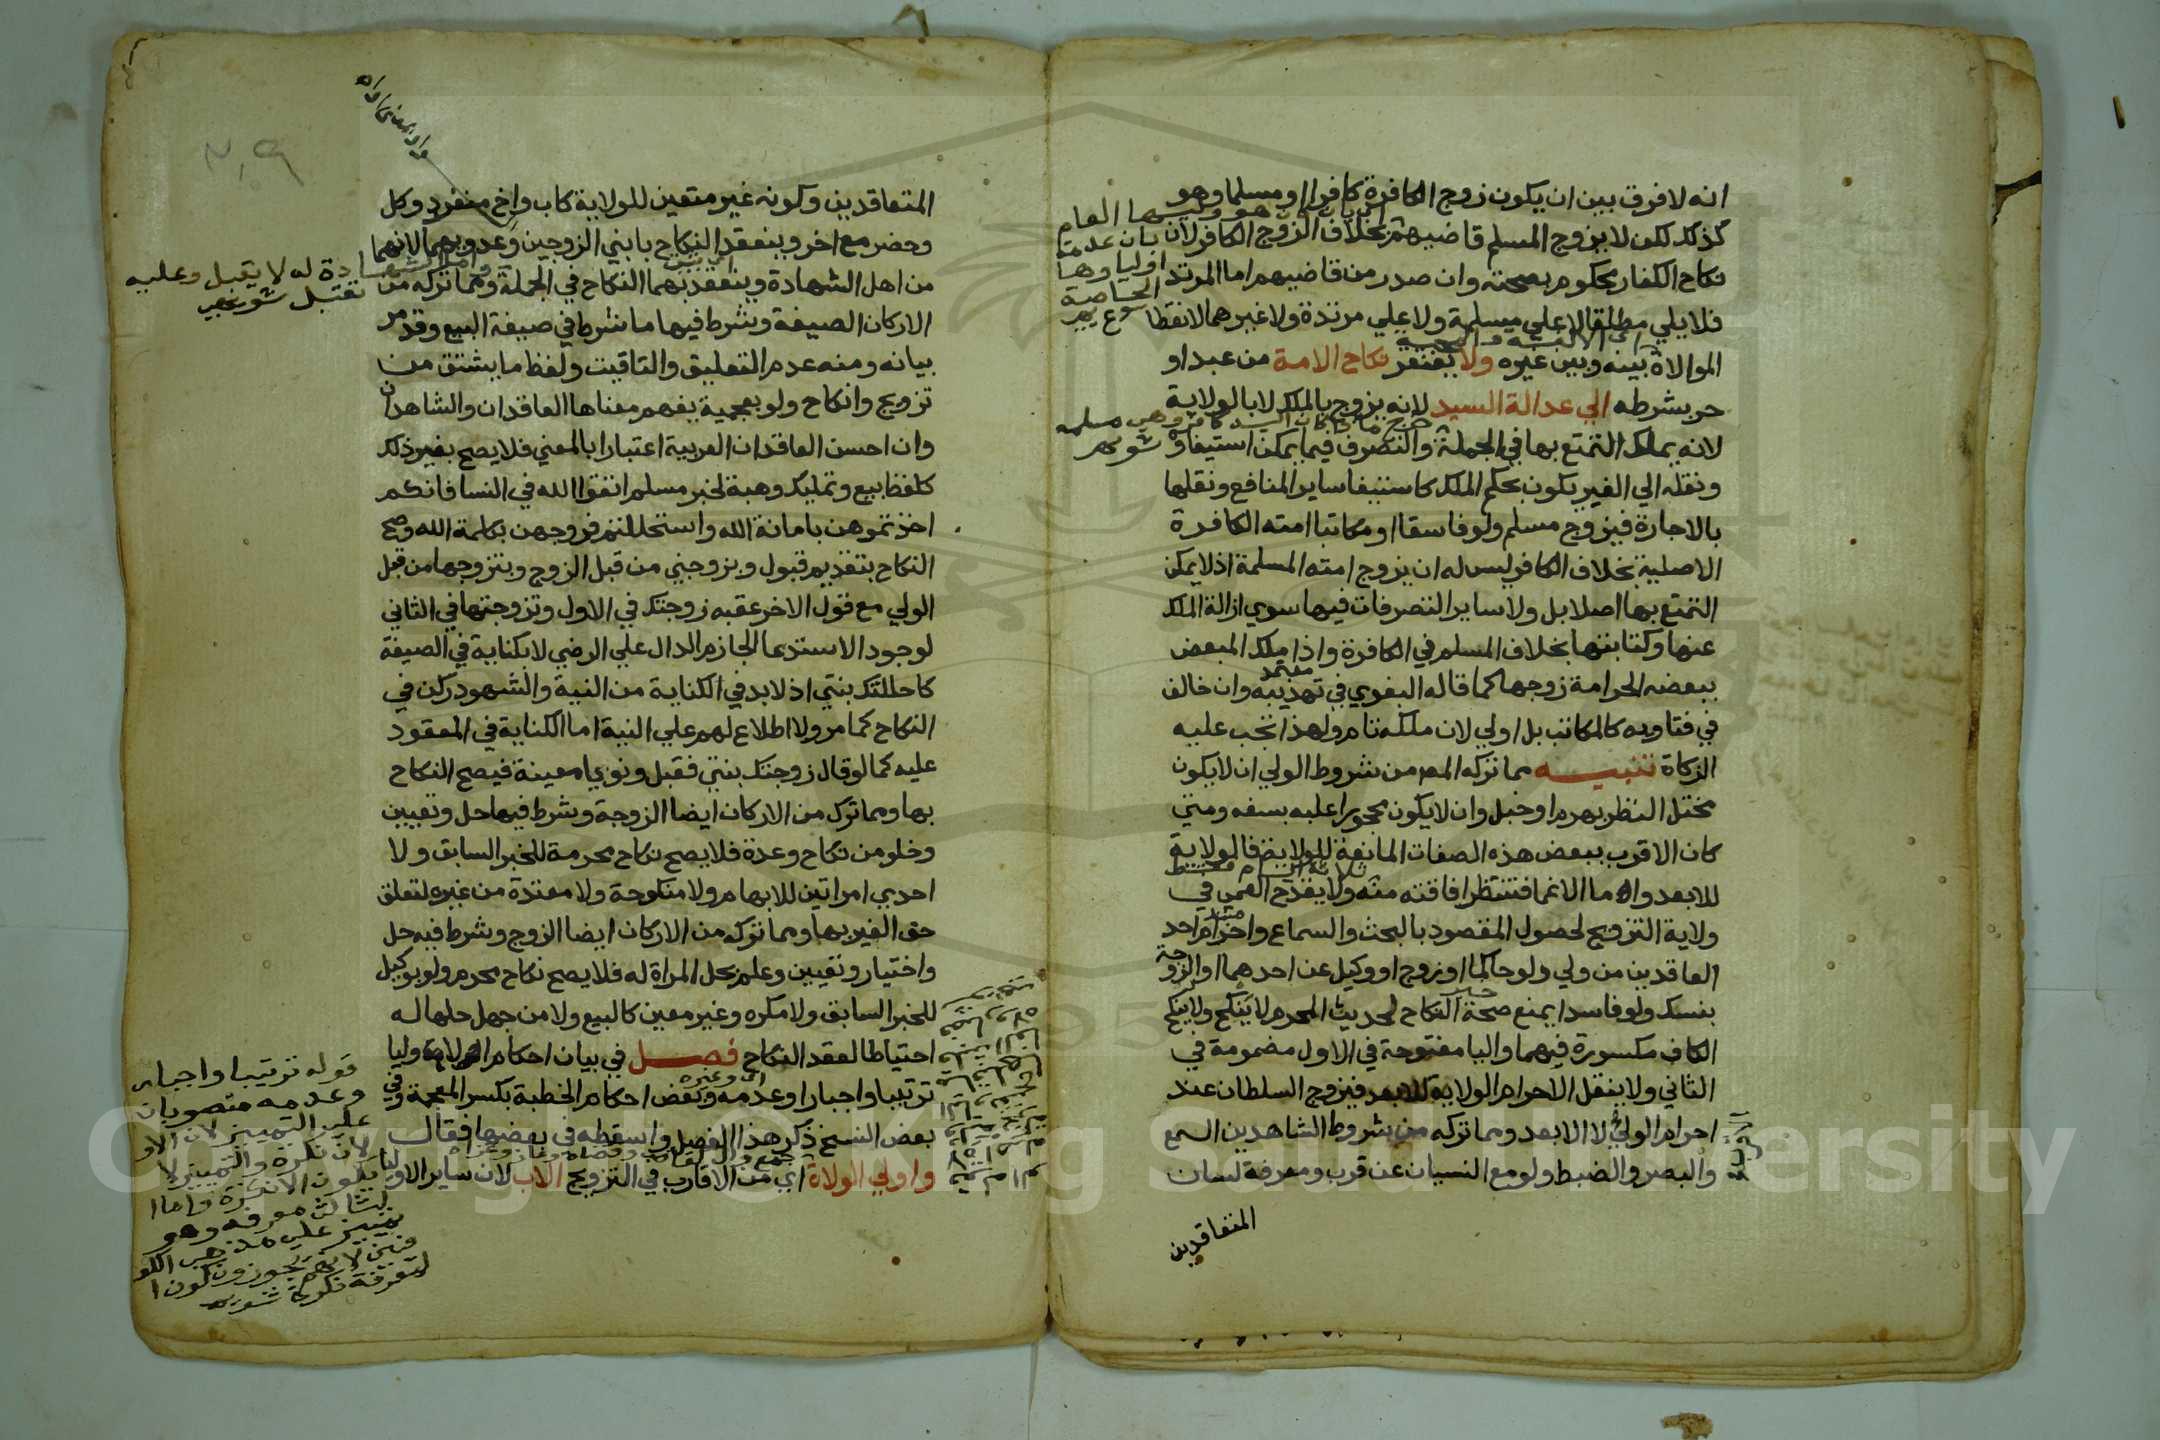 انه لا فرق بين ان يكون زوج الكافرة كافرا او مسلما وهو
كذلك لكن لا يزوج المسلم قاضيهم بخلاف الزوج الكافر لان
نكاح الكفار محكوم بصحته وان صدر من قاضيهم اما المرتد
فلا يلي مطلقا لا على مسلمة ولا على مرتدة ولا غيرهما لانقطاع
الموالاة بينه وبين غيره ولا يفتقر نكاح الامة من عبد او
حر بشرطه الي عدالة السيد لانه يزوج بالملك لا بالولاية
لانه يملك التمتع بها في الجملة والتصرف فيما يمكن استيفاؤ
ونقله الي الغير يكون بحكم الملك كاستيفا ساير المنافع ونقلها
بالاجارة فيزوج مسلم ولو فاسقا او مكاتبا امته الكافرة
الاصلية بخلاف الكافر ليس له ان يزوج امته المسلمة اذ لا يمكن
التمتع بها اصلا بل ولا ساير التصرفات فيها سوي ازالة الملك
عنها وكتابتها بخلاف المسلم في الكافرة واذا ملك المبعض
ببعضه الحر امة زوجها كما قاله البغوي في تهذيبه وان خالف
معتمد
في فتاويه كالمكاتب بل اولي لان ملكه تام ولهذا تجب عليه
الزكاة تنبيه مما تركه المص من شروط الولي ان لا يكون
مختل النظر بهرم او خبل وان لا يكون محجورا عليه بسفه ومتي
كان الاقرب ببعض هذه الصفات المانعة للولاية فالولاية
للابعد واما الاغما فتنتظر افاقته منه ولا يقدح العمي في
ولاية التزويج لحصول المقصود بالبحث والسماع واحرام احد
العاقدين من ولي ولو حاكما او زوج او وكيل عن احدهما او الزوجة
بنسك ولو فاسدا يمنع صحة النكاح لحديث المحرم لا ينكح ولا ينكح
الكاف مكسورة فيهما واليا مفتوحة في الاول مضمومة في
الثاني ولا ينقل الاحرام الولاية للابعد فيزوج السلطان عند
احرام الولي لا الابعد ومما تركه من شروط الشاهدين السمع
والبصر والضبط ولو مع النسيان عن قرب ومعرفة لسان
المتعاقدين
المتعاقدين وكونه غير متعين للولاية كاب واخ منفرد وكل
وحضر مع اخر وينعقد النكاح بابني الزوجين وعدويهما لانهما
من اهل الشهادة وينعقد بهما النكاح في الجملة ومما تركه من
الاركان الصيغة وشرط فيها ما شرط في صيغة البيع وقد مر
بيانه ومنه عدم التعليق والتاقيت ولفظ ما يشتق من
تزويج وانكاح ولو بعجمية يفهم معناها العاقدان والشاهدان
وان احسن العاقدان العربية اعتبارا بالمعني فلا يصح بغير ذلك
كلفظ بيع وتمليك وهبة لخبر مسلم اتقوا الله في النسا فانكم
اخذتموهن بامانة الله واستحللتم فروجهن بكلمة الله وصح
النكاح بتقديم قبول وبزوجني من قبل الزوج وبتزوجها من قبل
الولي مع قول الاخر عقبه زوجتك في الاول وتزوجتها في الثاني
لوجود الاستدعا الجازم الدال علي الرضي لا بكناية في الصيغة
كاحللتك بنتي اذ لا بد في الكناية من النية والشهود ركن في
النكاح كما مر ولا اطلاع لهم علي النية اما الكناية في المعقود
عليه كما لو قال زوجتك بنتي فقبل ونويا معينة فيصح النكاح
بها ومما تركه من الاركان ايضا الزوجة وشرط فيها حل وتعيين
وخلو من نكاح وعدة فلا يصح نكاح محرمة للخبر السابق ولا
احدي امراتين للابهام ولا منكوحة ولا معتدة من غيره لتعلق
حق الغير بها ومما تركه من الاركان ايضا الزوج وشرط فيه حل
واختيار وتعيين وعلم بحل المراة له فلا يصح نكاح محرم ولو بوكيل
للخبر السابق ولا مكره وغير معين كالبيع ولا من جهل حلها له
احتياطا لعقد النكاح فصل في بيان احكام الاوليا
ترتيبا واجبارا وعدمه وبعض احكام الخطبة بكسر المعجمة وفي
بعض النسخ ذكر هذا الفصل واسقطه في بعضها فقال
واولي الولاة اي من الاقارب في التزويج الاب لان ساير الاوليا
قوله ترتيبا واجبار
وعدمه منصوبان
علي التمييز لان الاو
لان نكرة والتمييز لا
يكون الا نكرة واما ا
لثالث معرفة وهو
تمييز علي مذهب الكو
فيين لانهم يجوزون كون ا
لمعرفة نكرة